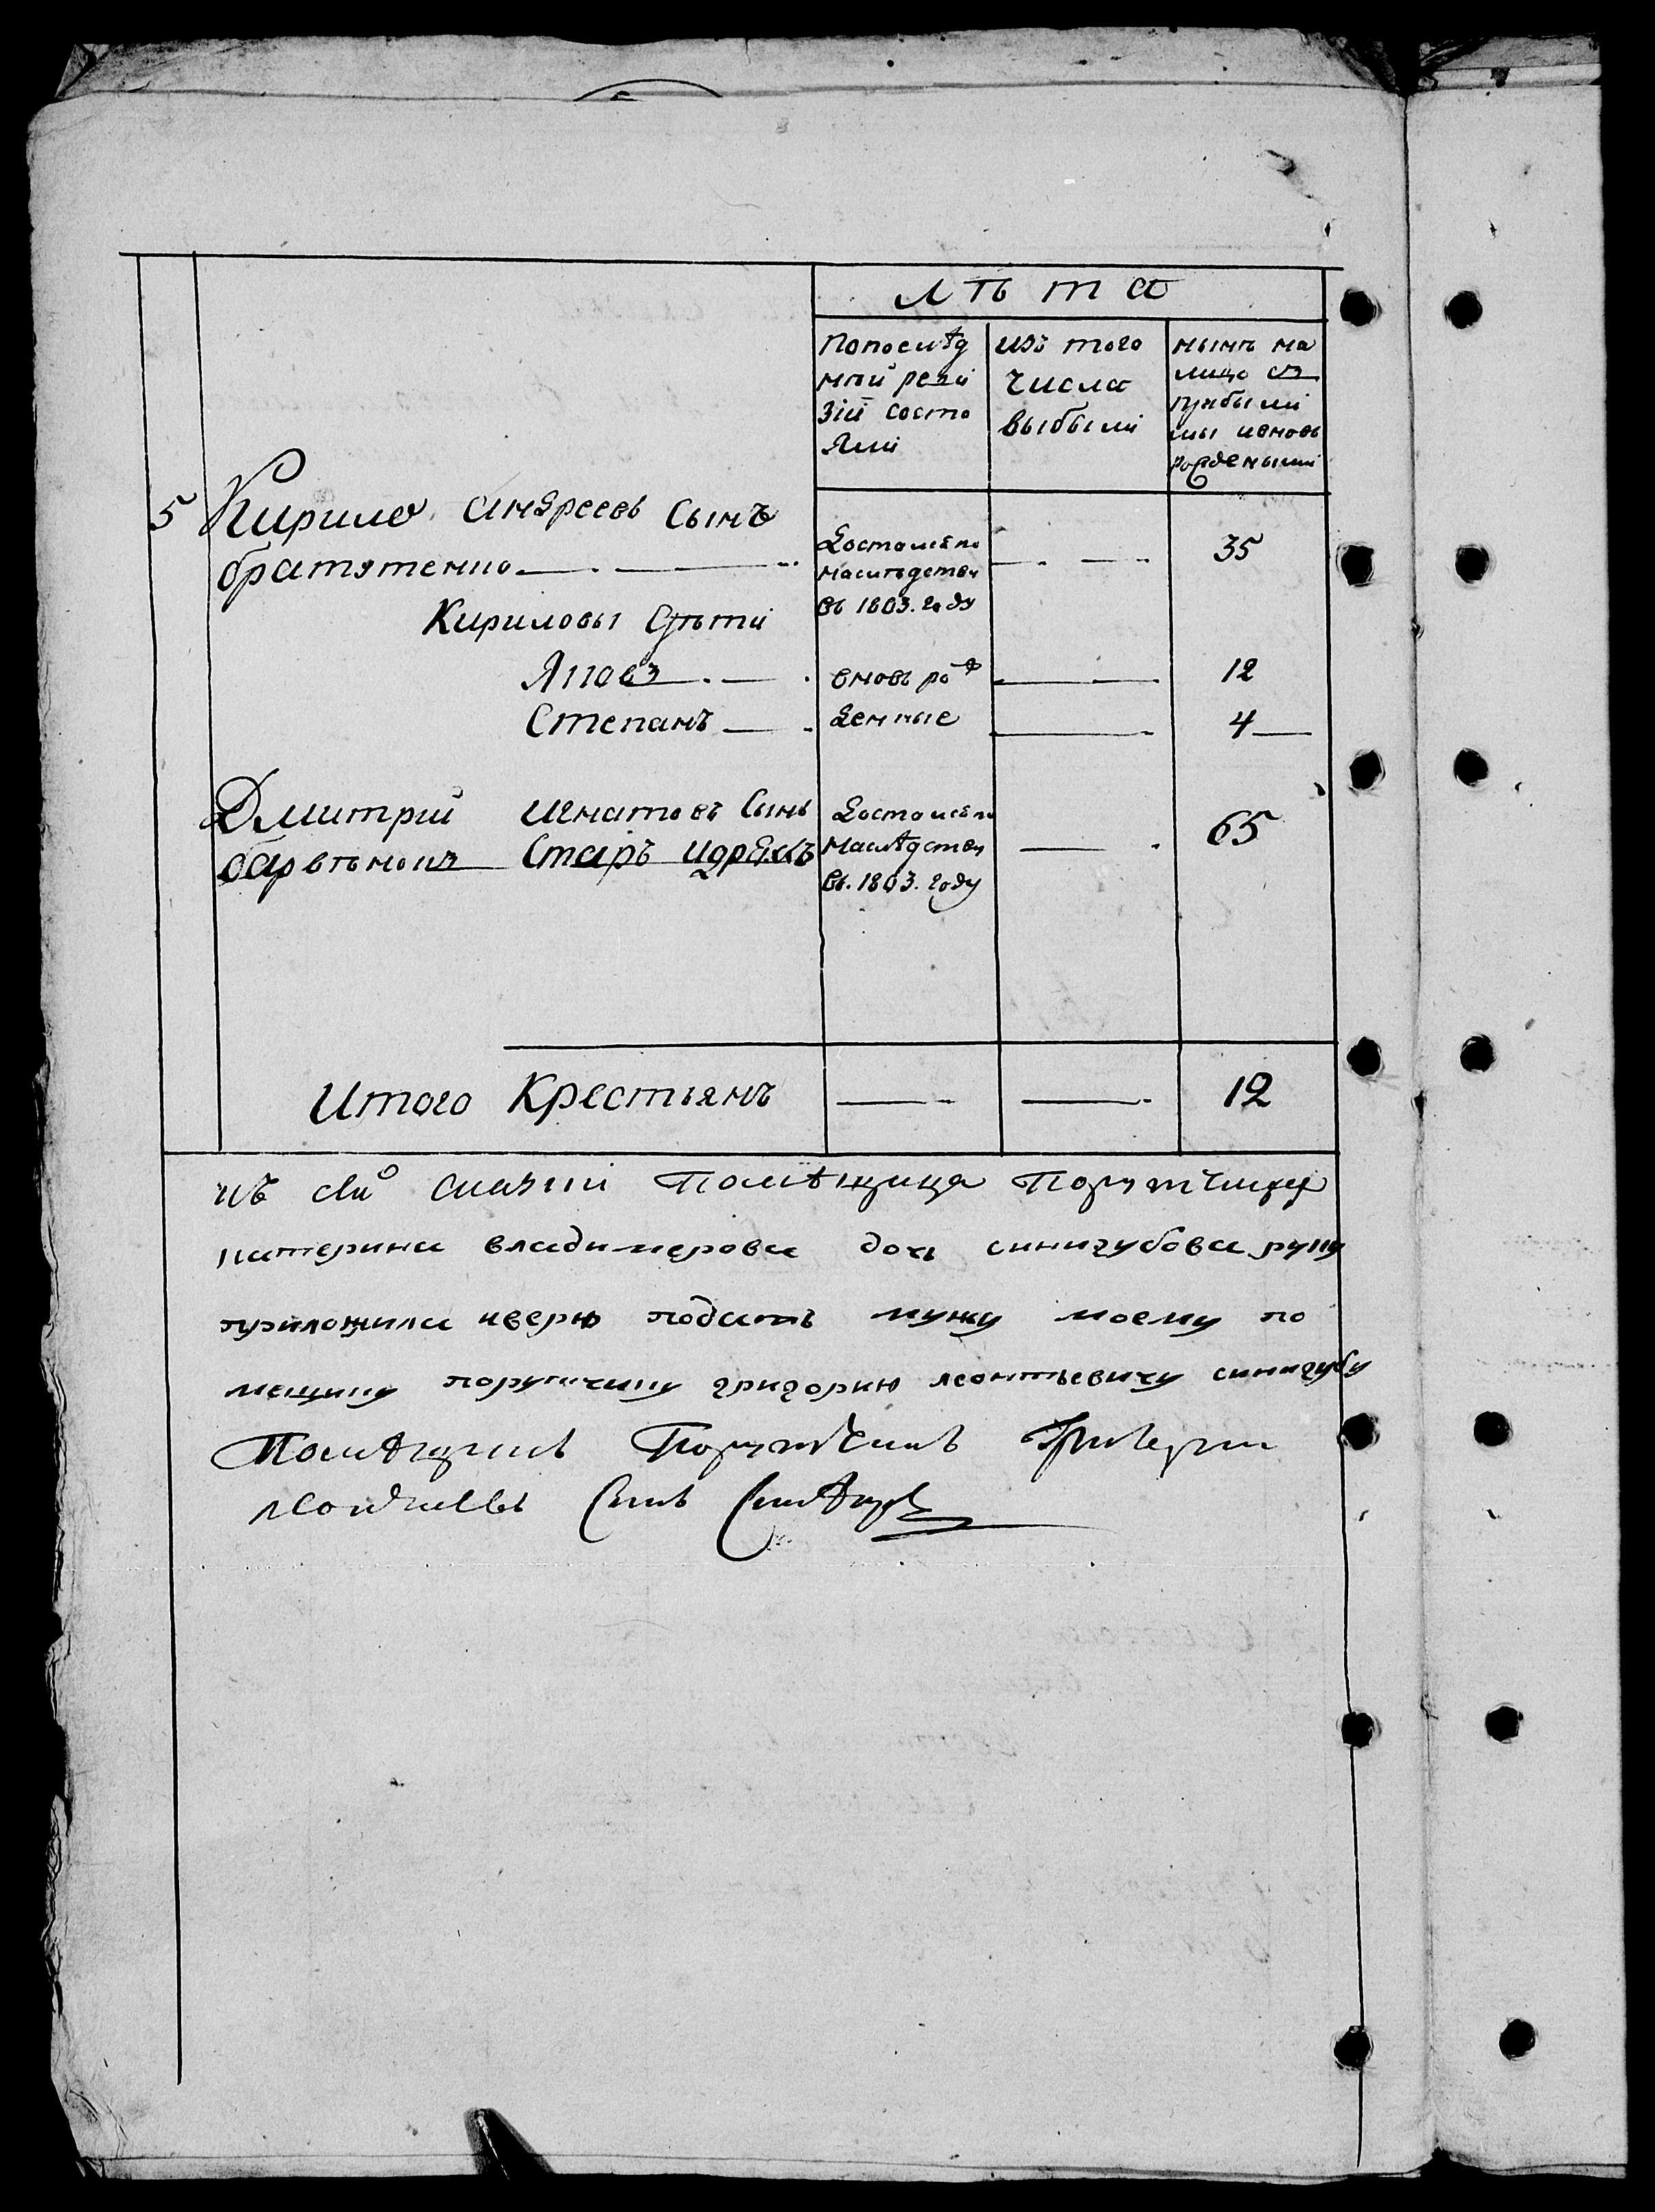 лѣта
попослѣд
ней реви
зій состо
яли
изъ того
числа
выбыли
нынѣ на
лицо съ
прибылы
мы ивновь
рождеными
5 Кирило андреевъ сынъ
братятенко
Досталсяпо
наслѣдству
въ 1803. году
35
Кириловы дѣти
Яковъ вновь рож 12
Степанъ денные 4
Дмитрий игнатовъ сынъ
старъ идряхлъ
Досталсяпо
наслѣдству
въ. 1803. году
65
Итого Крестьянъ 12
къ сей скаски Помѣщица Порутчица
катерина владимерова дочь синигубова руку
приложила иверю подать мужу моему по
мещику порутчику григорию леонтьевичу синигубу
Помѣщикъ Порутчикъ Григорий
леонтиевъ Сынъ Синѣгубъ